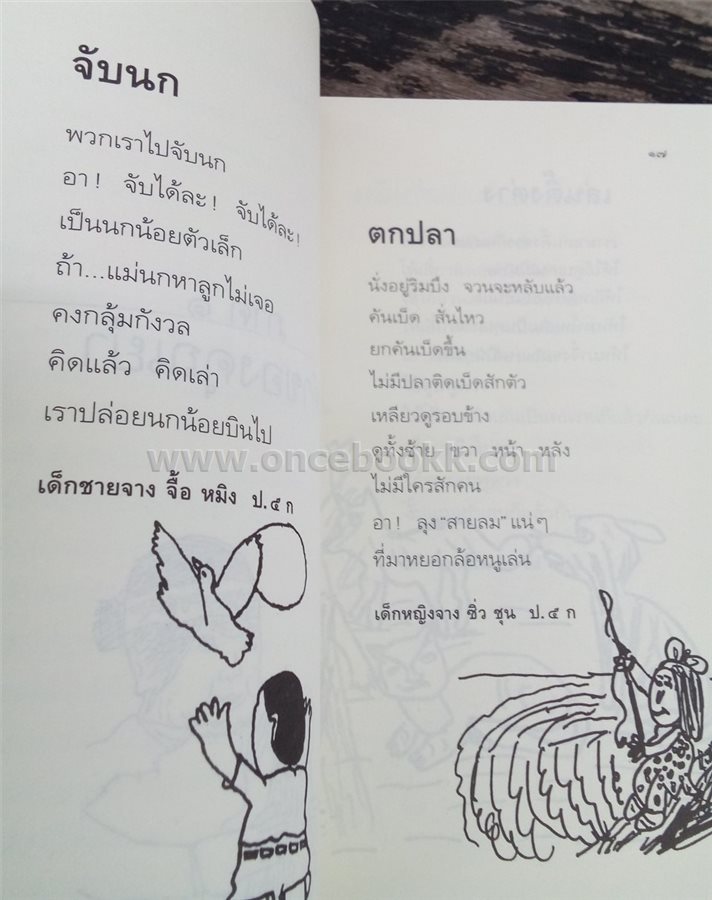 จับนก
พวกเราไปจับนก
อา! จับได้ละ! จับได้ละ!
เป็นนกน้อยตัวเล็ก
ถ้า...แม่นกหาลูกไม่เจอ
คงกลุ้มกังวล
คิดแล้ว คิดเล่า
เราปล่อยนกน้อยบินไป
เด็กชายจาง จื้อ หมิง ป.๕ ก
๑๗
ตกปลา
นั่งอยู่ริมบึง จวนจะหลับแล้ว
คันเบ็ด สั่นไหว
ยกคันเบ็ดขึ้น
ไม่มีปลาติดเบ็ดสักตัว
เหลียวดูรอบข้าง
ดูทั้งซ้าย ขวา หน้า หลัง
ไม่มีใครสักคน
อา! ลุง "สายลม" แน่ๆ
ที่มาหยอกล้อหนูเล่น
เด็กหญิงจาง ซิ่ว ชุน ป.๕ ก
www.oncebookk.com